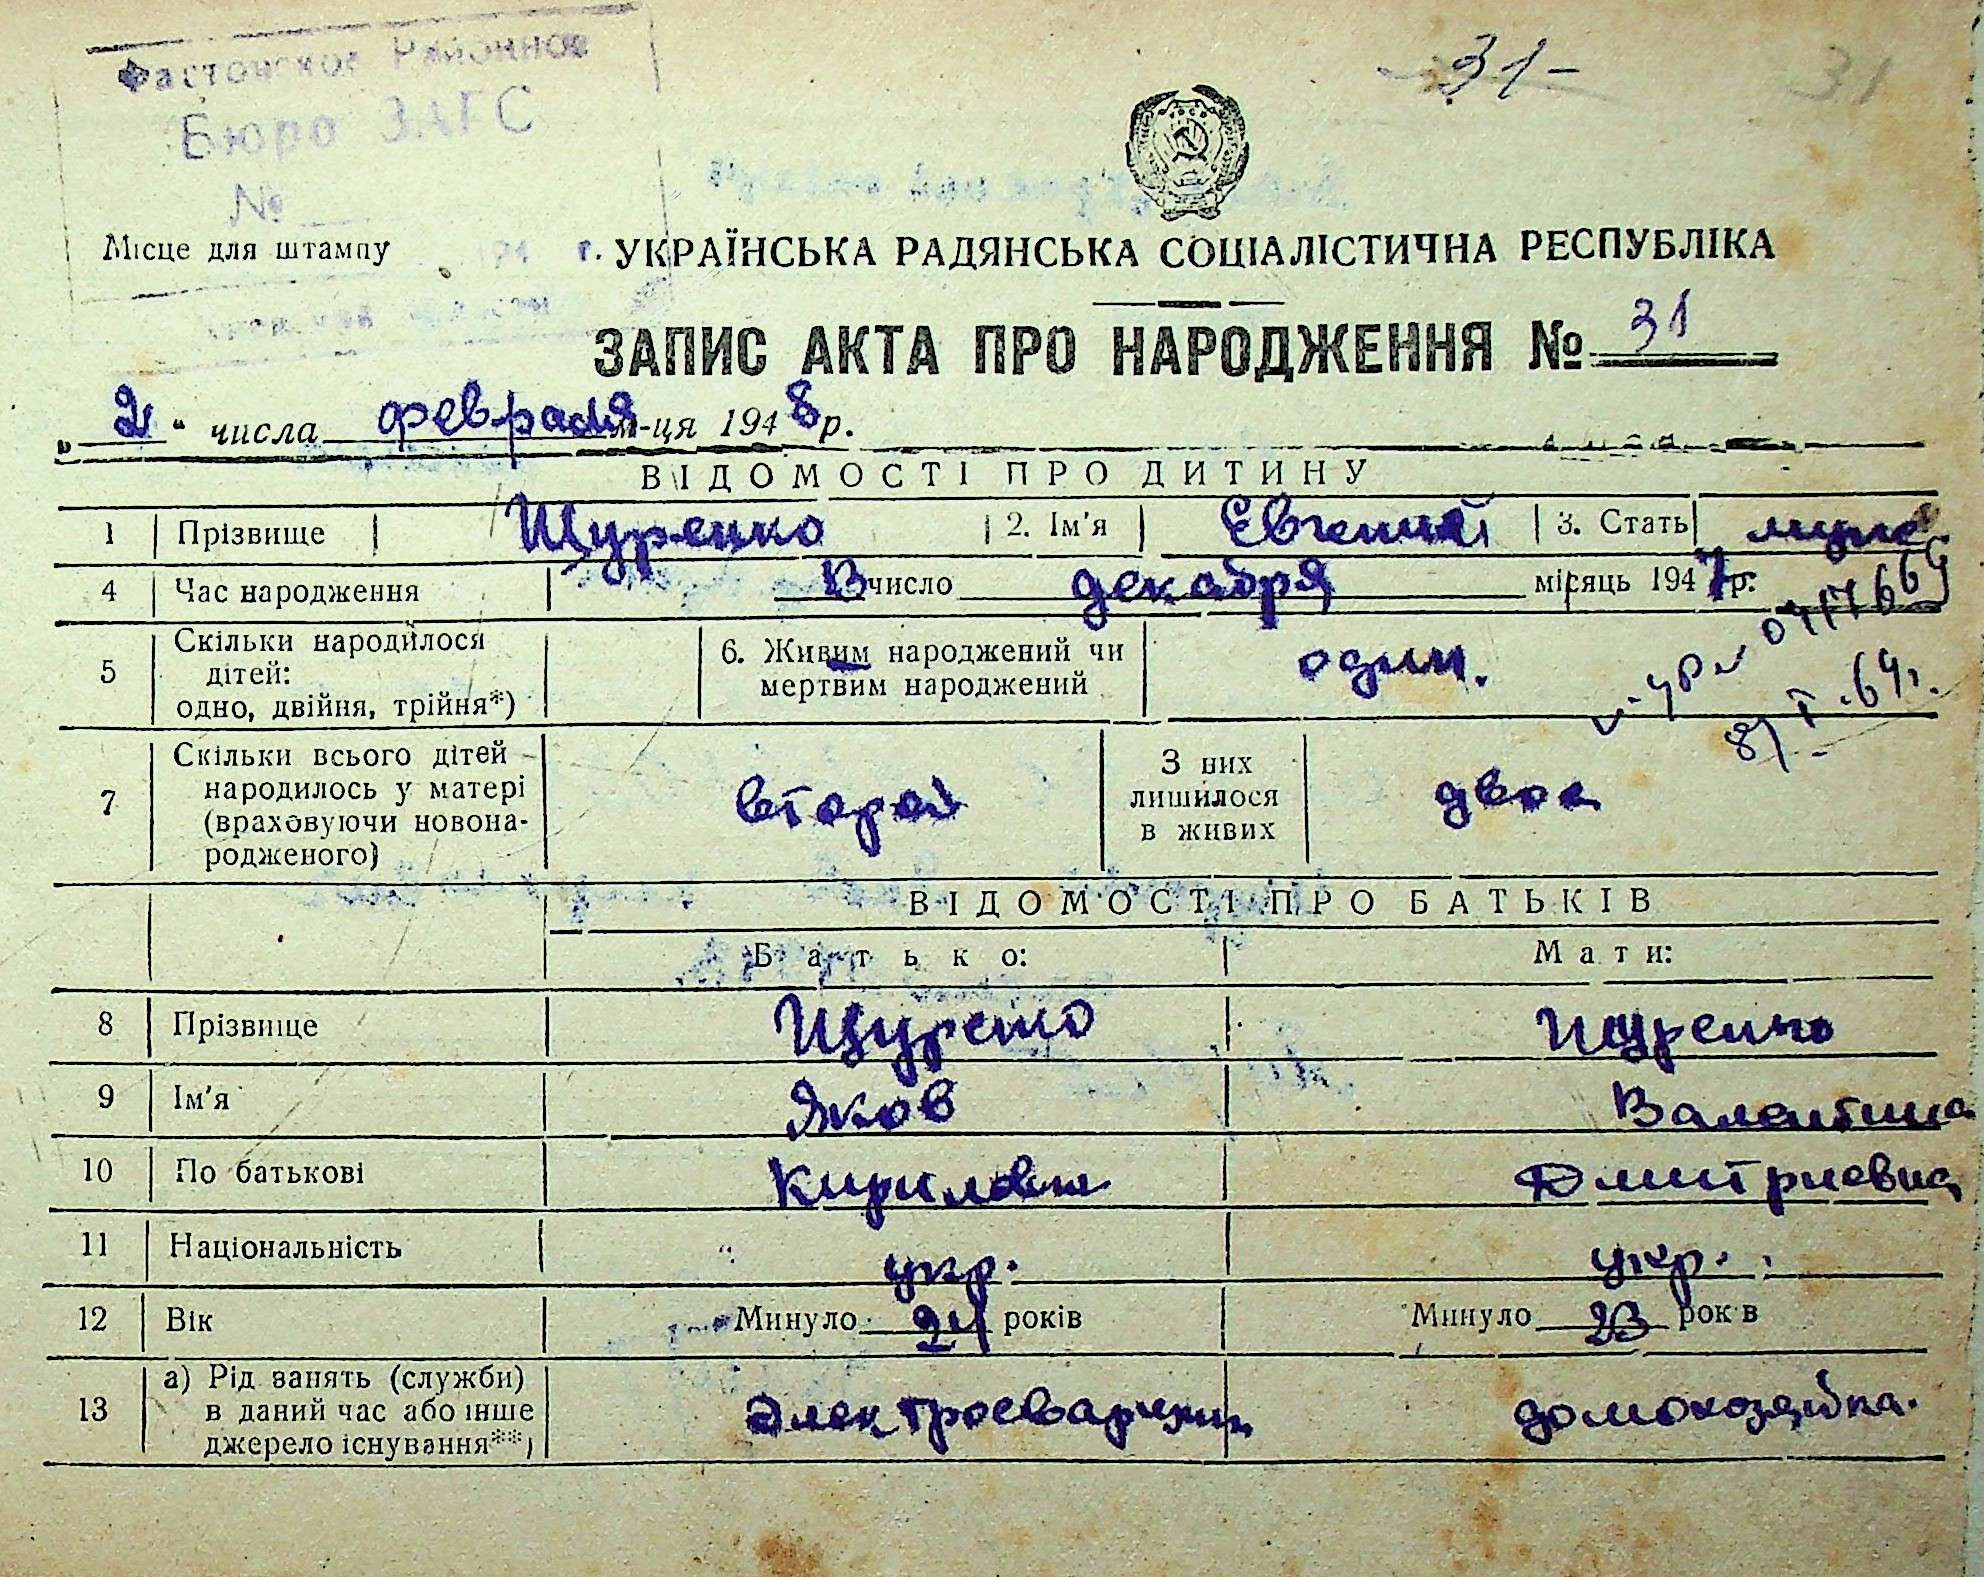 Фастовское Районное
Бюро ЗАГС
№
31-
31
Місце для штампу
194 г.
УКРАЇНСЬКА РАДЯНСЬКА СОЦІАЛІСТИЧНА РЕСПУБЛІКА
ЗАПИС АКТА ПРО НАРОДЖЕННЯ № 31
„2“ числа февраля м-ця 1948 р.
ВІДОМОСТІ ПРО ДИТИНУ
1 Прізвище Щуренко 2. Ім'я Евгений 3. Стать муж
4 Час народження 13 число декабря місяць 1947 р.
5 Скільки народилося дітей: одно, двійня, трійня*) 6. Живим народжений чи мертвим народжений один.
8/I-64г.
7 Скільки всього дітей народилось у матері (враховуючи новонародженого) второй З них лишилося в живих двое
ВІДОМОСТІ ПРО БАТЬКІВ
Батько: Мати:
8 Прізвище Щуренко Щуренко
9 Ім'я Яков Валентина
10 По батькові Кирилович Дмитриевна
11 Національність укр. укр.
12 Вік Минуло 24 років Минуло 23 років
13 а) Рід занять (служби) в даний час або інше джерело існування**) Электросварщик домохозяйка.